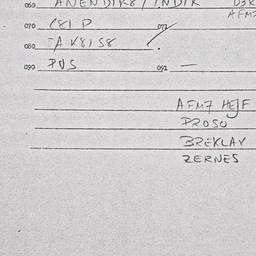 060 ANENDIK8 / INDIK
AFM7
070 C81 P 071
080 -A K8158
090 PUS 091 —
AFM7 HEJF
PROSO
BREKLAV
ZERNES